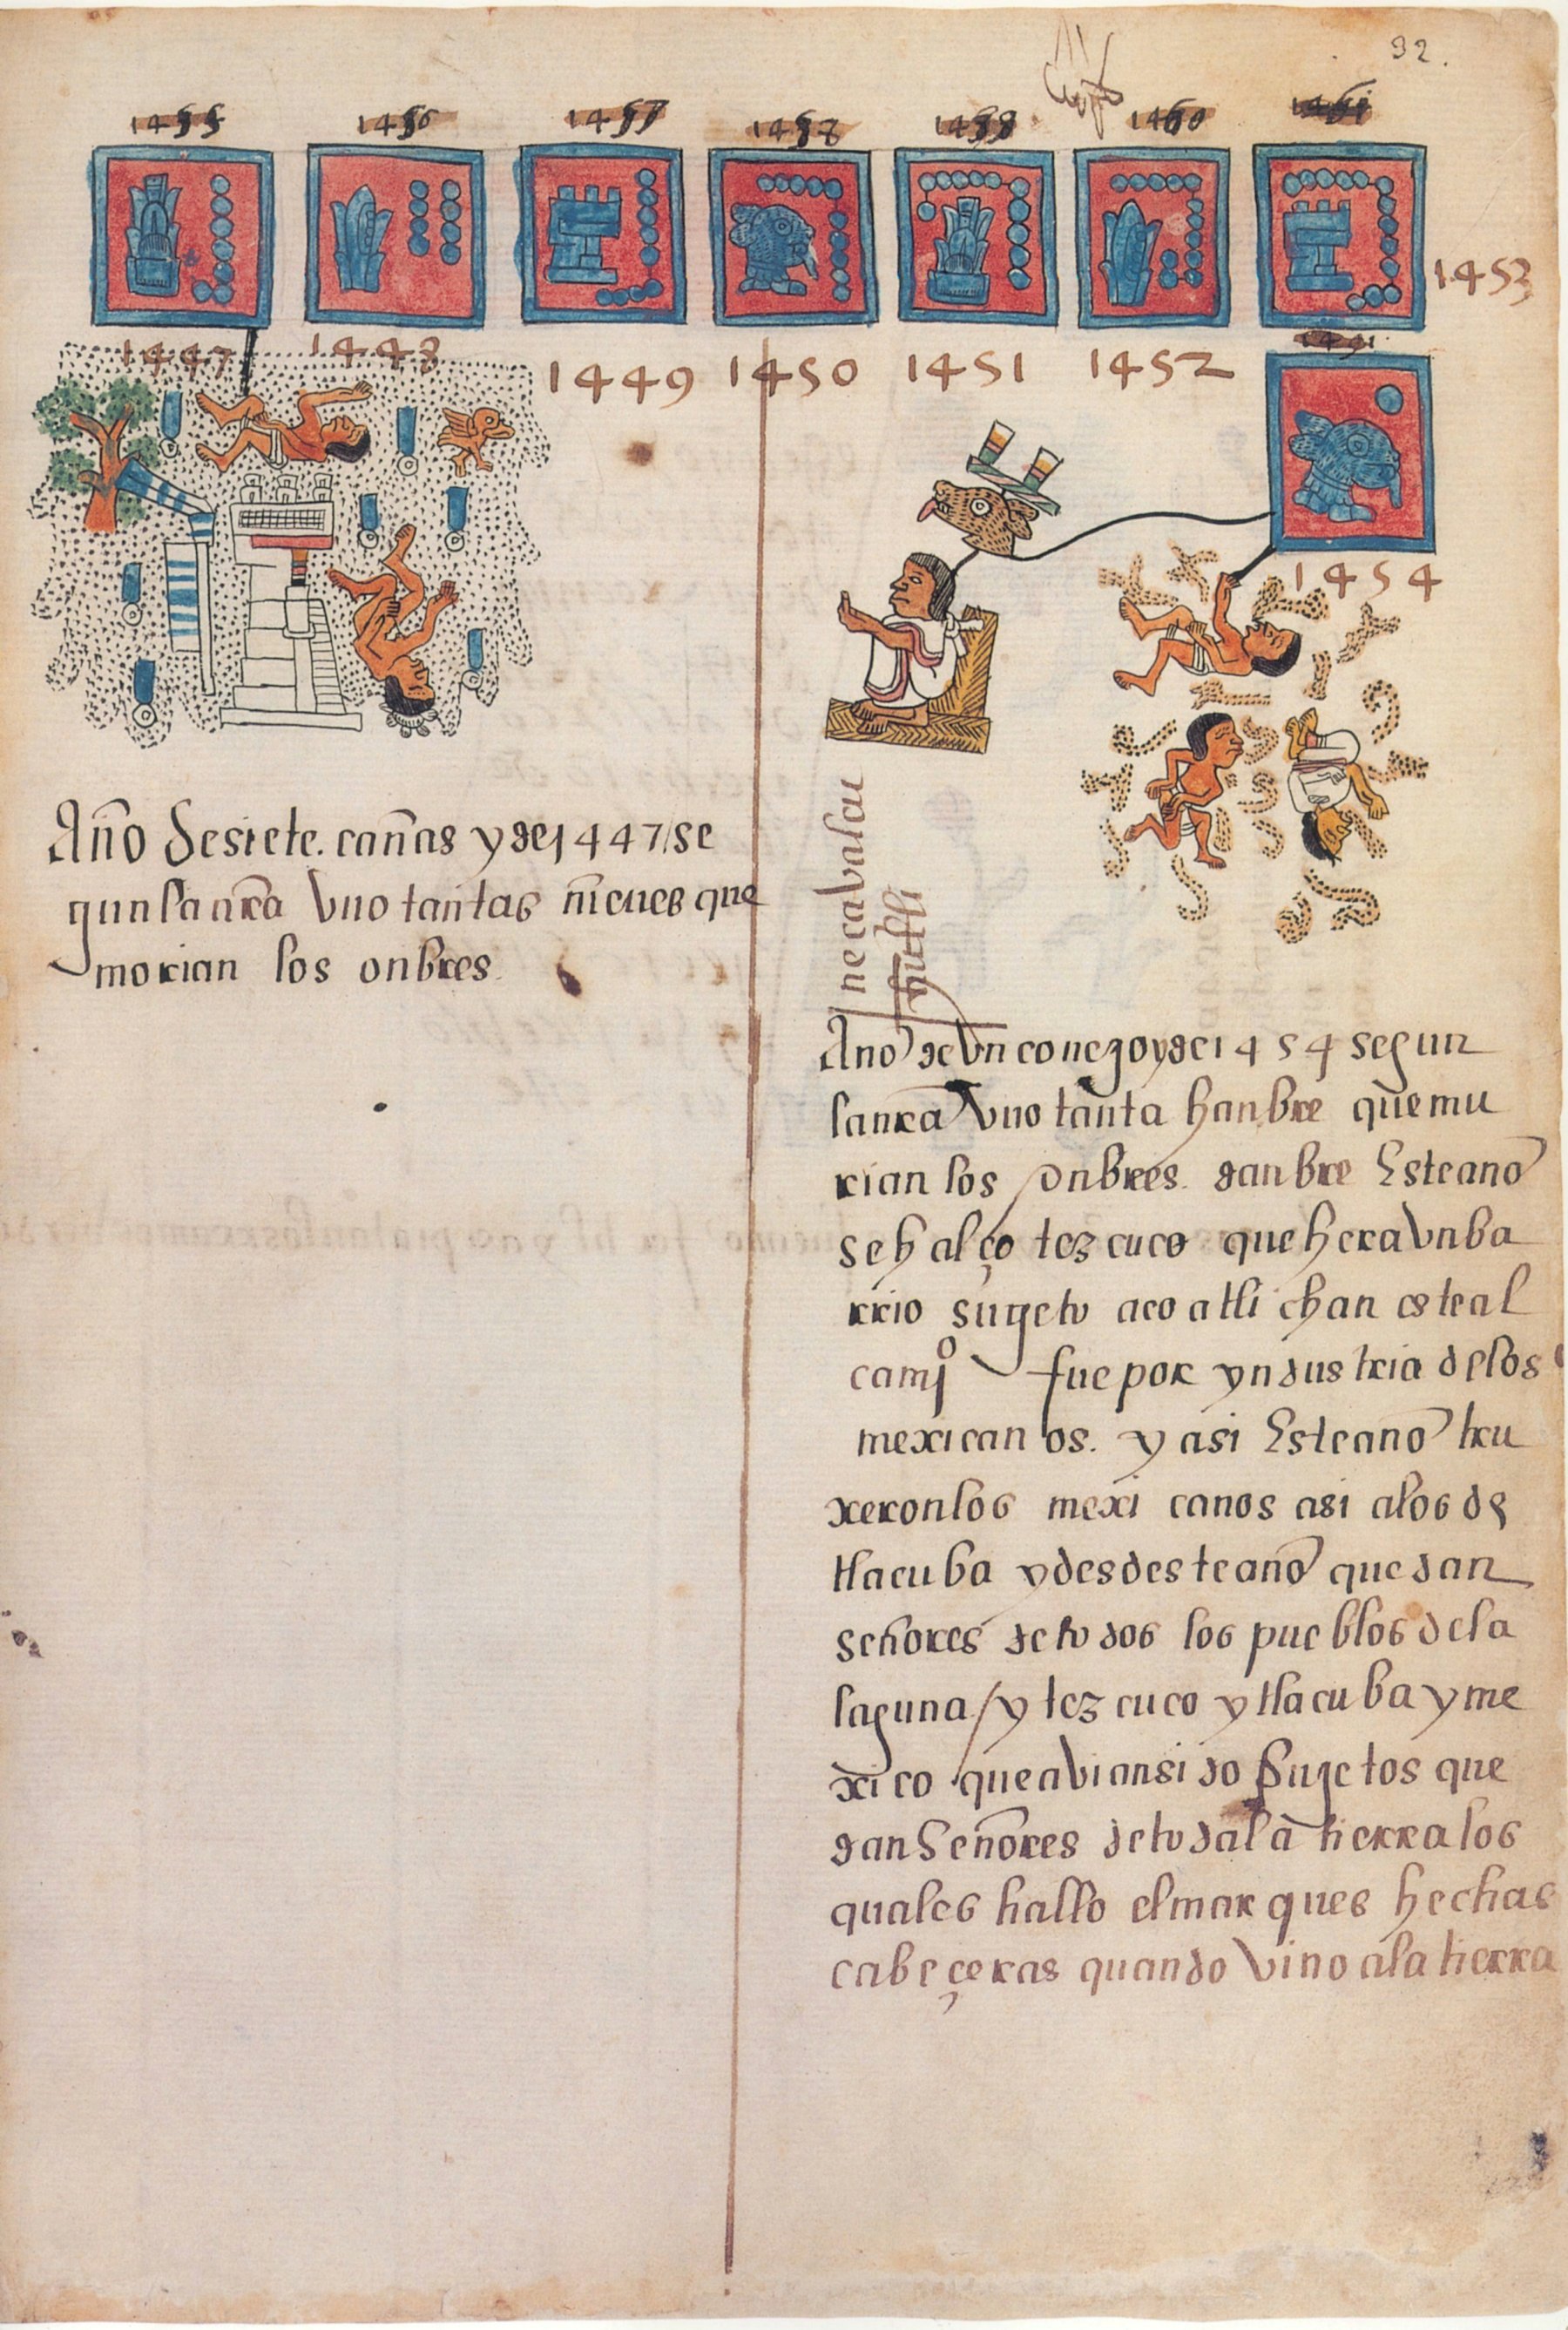 32.
1447
1448
1449
1450
1451
1452
1453
1454
Año de siete. cañas y de 1447 / se
gun la nr̃a vuo tantas nieues que
morian los onbres.
necavalcu
Año de vn conejo y de 1454 segun
la nr̃a vuo tanta hanbre que mu
rian los onbres. danbre Este año
se h alço tezcuco que hera vn ba
rrio sugeto a coatlichan este al
camjº fue por yndustria de los
mexicanos. y asi Este año tru
xeron los mexicanos asi a los de
tlacuba y desde ste año quedan
señores de todos los pueblos de la
laguna / y tezcuco y tlacuba y me
xico que avian sido sugetos que
dan Señores de toda la tierra los
quales hallo el marques hechas
cabeçeras quando vino a la tierra